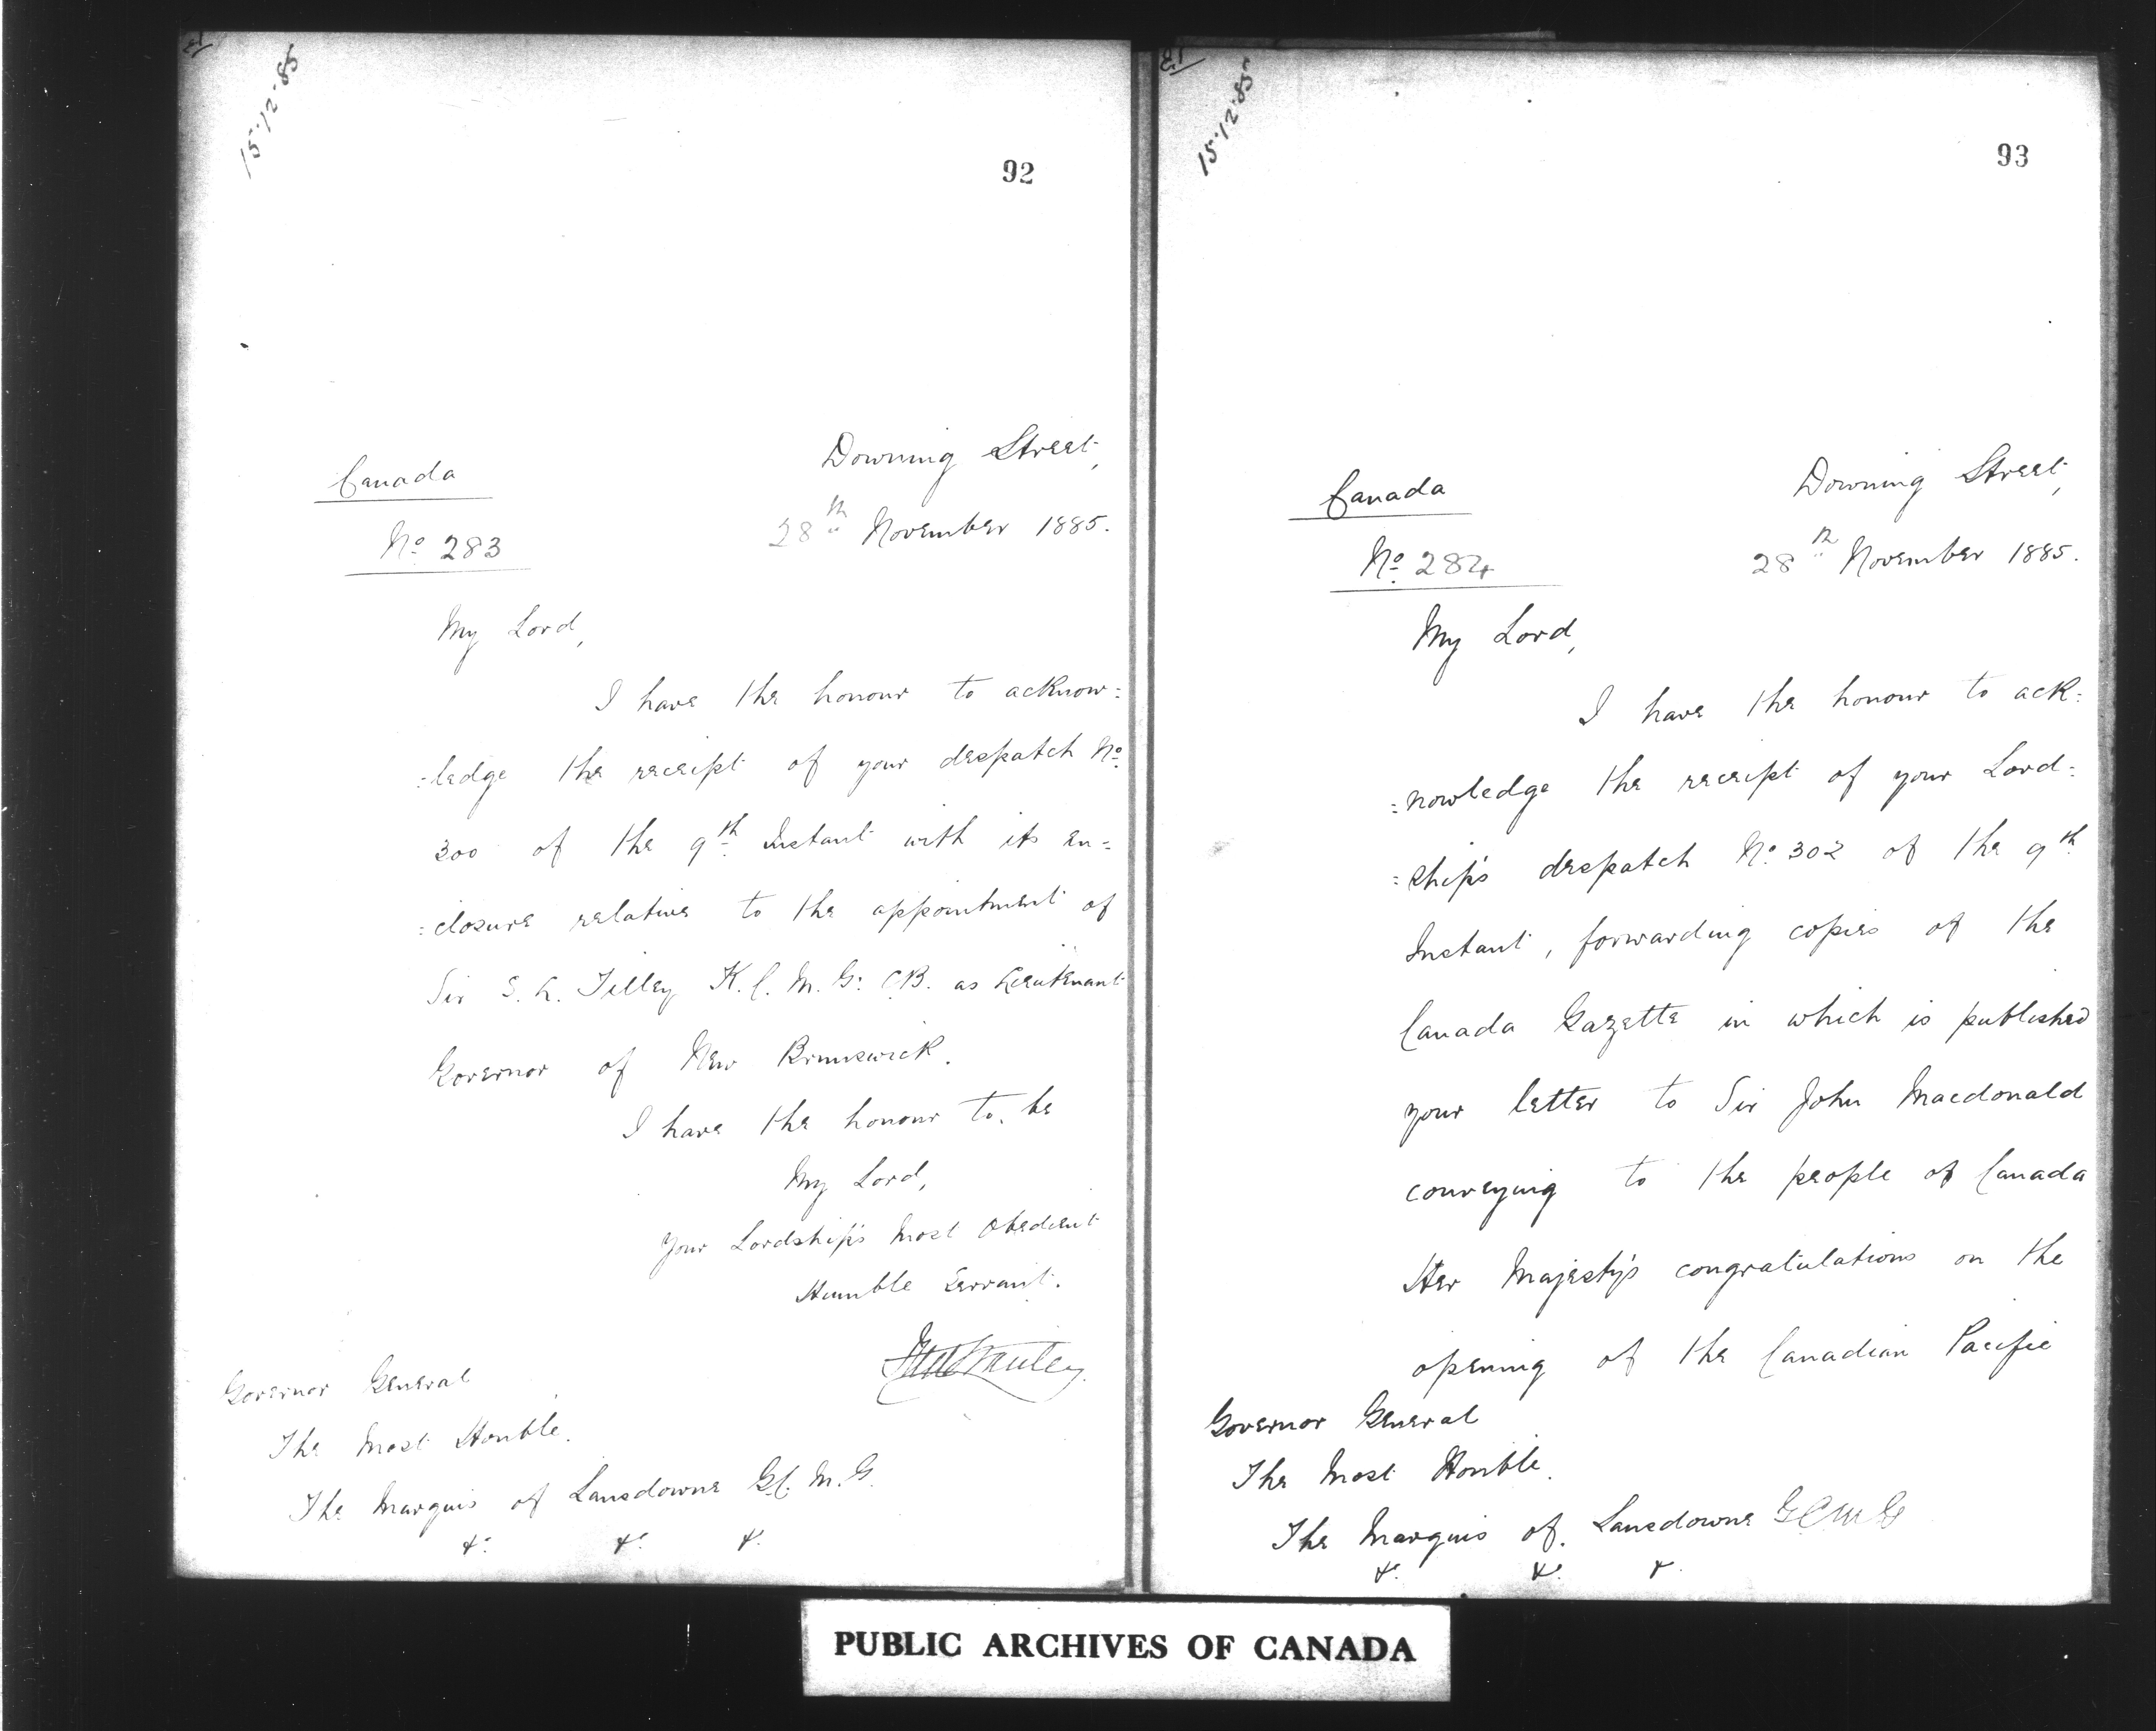 15.12.85
92
Canada
Downing Street,
No 283
28th November 1885.
My Lord,
I have the honour to acknow=
=ledge the receipt of your despatch No
300 of the 9th Instant with its en=
=closure relative to the appointment of
Sir S. L. Tilley K.C.M.G: C.B. as Lieutenant
Governor of New Brunswick.
I have the honour to be
My Lord,
Your Lordship's Most Obedient
Humble Servant.
Fred Stanley
Governor General
The Most Honble.
The Marquis of Lansdowne G.C.M.G.
&c. &c. &c.
15.12.85
93
Canada
Downing Street,
No 284
28th November 1885.
My Lord,
I have the honour to ack=
=nowledge the receipt of your Lord=
=ship's despatch No. 302 of the 9th
Instant, forwarding copies of the
Canada Gazette in which is published
your letter to Sir John Macdonald
conveying to the people of Canada
Her Majesty's congratulations on the
opening of the Canadian Pacific
Governor General
The Most Honble.
The Marquis of Lansdowne GCMG
&c. &c. &c.
PUBLIC ARCHIVES OF CANADA